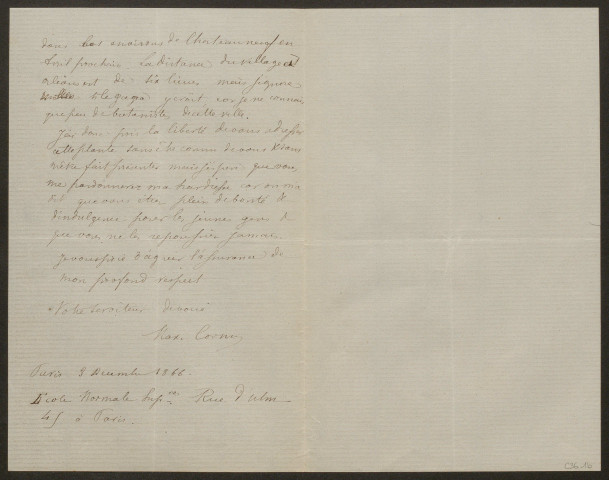 dans les environs de Chateauneuf en
avril prochain. La distance du village à
Orléans est de six lieues mais j'ignore
si le gagea y croît, car je ne connais
que peu de botanistes de cette ville.
J'ai donc pris la liberté de vous adresser
cette plante sans être connu de vous & sans
m'être fait présenter mais j'espère que vous
me pardonnerez ma hardiesse car on m'a
dit que vous êtes plein de bonté &
d'indulgence pour les jeunes gens &
que vous ne les repoussez jamais.
Je vous prie d'agréer l'assurance de
mon profond respect
Votre serviteur dévoué
Max. Cornu
Paris 8 Décembre 1866.
Ecole Normale Imp.re Rue d'Ulm
45 à Paris.